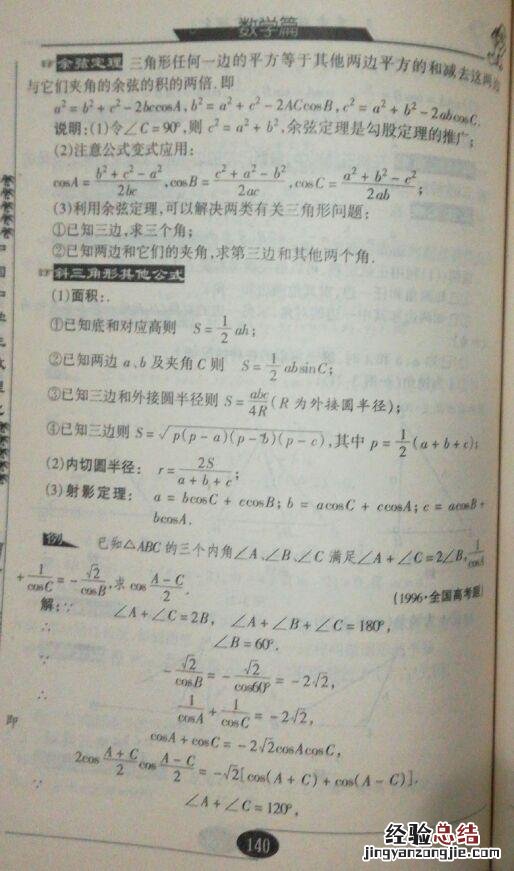 数学篇
余弦定理 三角形任何一边的平方等于其他两边平方的和减去这两边
与它们夹角的余弦的积的两倍.即
a²=b²+c²-2bccosA,b²=a²+c²-2ACcosB,c²=a²+b²-2abcosC.
说明:(1)令∠C=90°,则c²=a²+b²,余弦定理是勾股定理的推广;
(2)注意公式变式应用:
cosA=(b²+c²-a²)/2bc,cosB=(c²+a²-b²)/2ac,cosC=(a²+b²-c²)/2ab;
(3)利用余弦定理,可以解决两类有关三角形问题:
①已知三边,求三个角;
②已知两边和它们的夹角,求第三边和其他两个角.
斜三角形其他公式
(1)面积:.
①已知底和对应高则 S=1/2 ah;
②已知两边a、b及夹角C则 S=1/2 absinC;
③已知三边和外接圆半径则S=abc/4R(R为外接圆半径);
④已知三边则S=√p(p-a)(p-b)(p-c),其中p=1/2(a+b+c);
(2)内切圆半径: r=2S/(a+b+c);
(3)射影定理: a=bcosC+ccosB;b=acosC+ccosA;c=acosB+
bcosA.
例 已知△ABC的三个内角∠A、∠B、∠C满足∠A+∠C=2∠B,1/cosA
+1/cosC=-√2/cosB,求cos (A-C)/2.
(1996·全国高考题)
解:∵ ∠A+∠C=2B, ∠A+∠B+∠C=180°,
∴ ∠B=60°.
-√2/cosB=-√2/cos60°=-2√2,
∴ 1/cosA+1/cosC=-2√2,
即 cosA+cosC=-2√2cosAcosC,
2cos (A+C)/2 cos (A-C)/2=-√2[cos(A+C)+cos(A-C)].
∵ ∠A+∠C=120°,
140
经验总结
jingyanzongjie.com